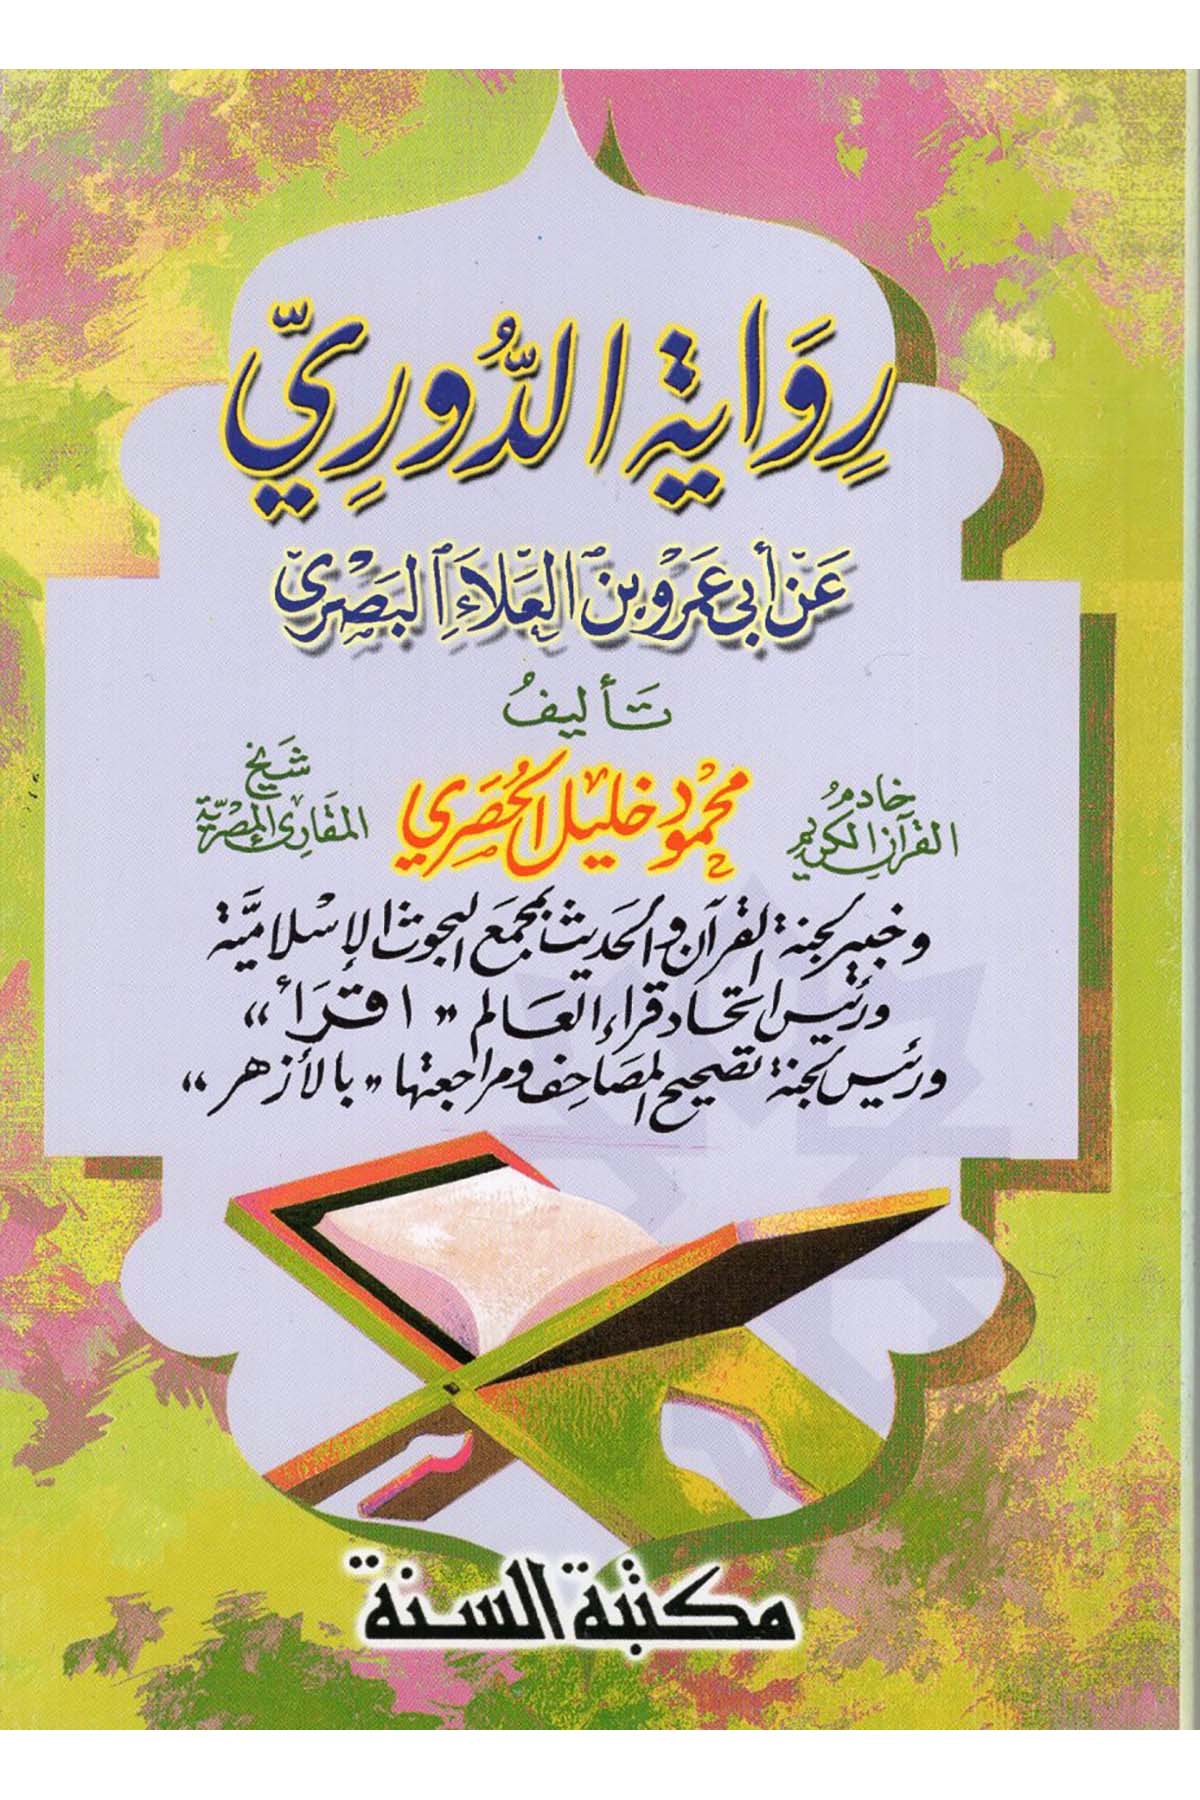 رِوَاية الدُّورِيّ
عَن أبي عَمرو بن العَلاءِ البَصْري
تَأليفُ
خادمُ القرآن الكريم
محمود خليل الحُصَري
شَيخ المقارئ المصريَّة
وخبير لجنة القرآن والحَديث بمجمَع البحوث الإسْلاميَّة
ورئيس اتحاد قراء العَالم "اقرَأ"
ورئيس لجنة تصحيح المصَاحِف ومراجعتها "بالأزهر"
مكتبة السنة